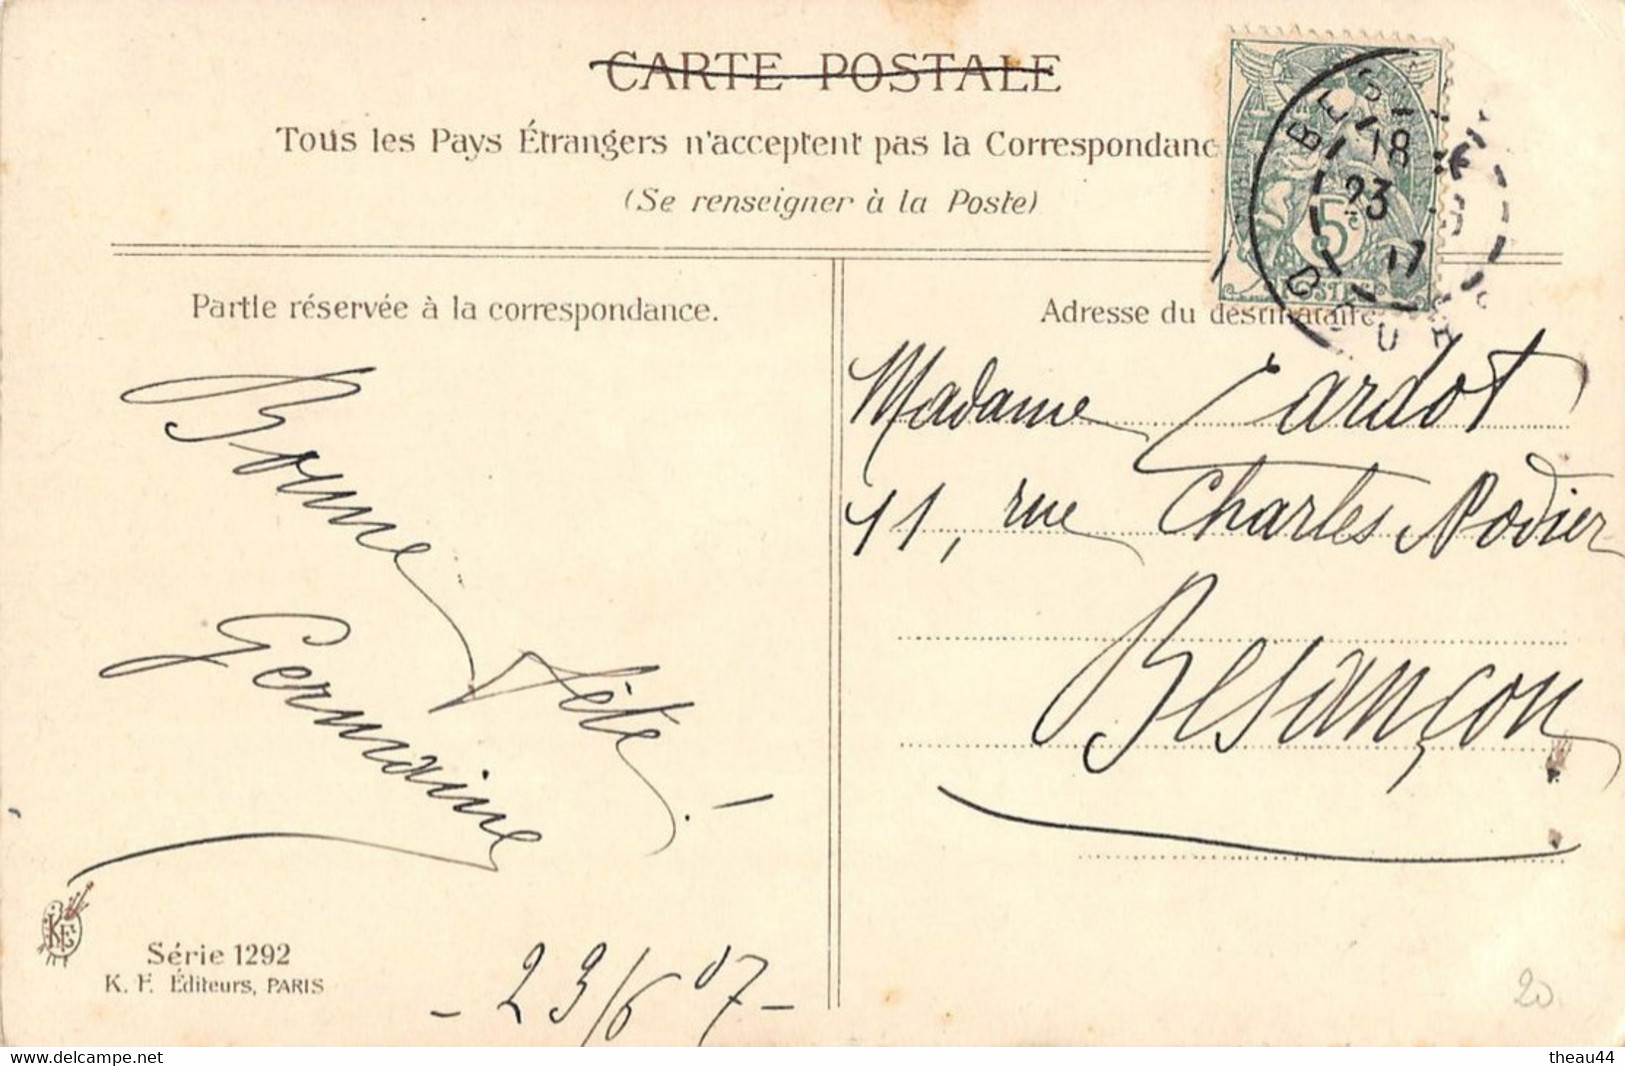 CARTE POSTALE
Tous les Pays Étrangers n'acceptent pas la Correspondanc
(Se renseigner à la Poste)
18
23
5c
POSTES
Partie réservée à la correspondance.
Adresse du destinataire
Bonne fête!
Germaine
- 23/6 07 -
Madame Cardot
11, rue Charles Nodier
Besançon
KF
Série 1292
K. F. Éditeurs, PARIS
20
delcampe.net
theau44